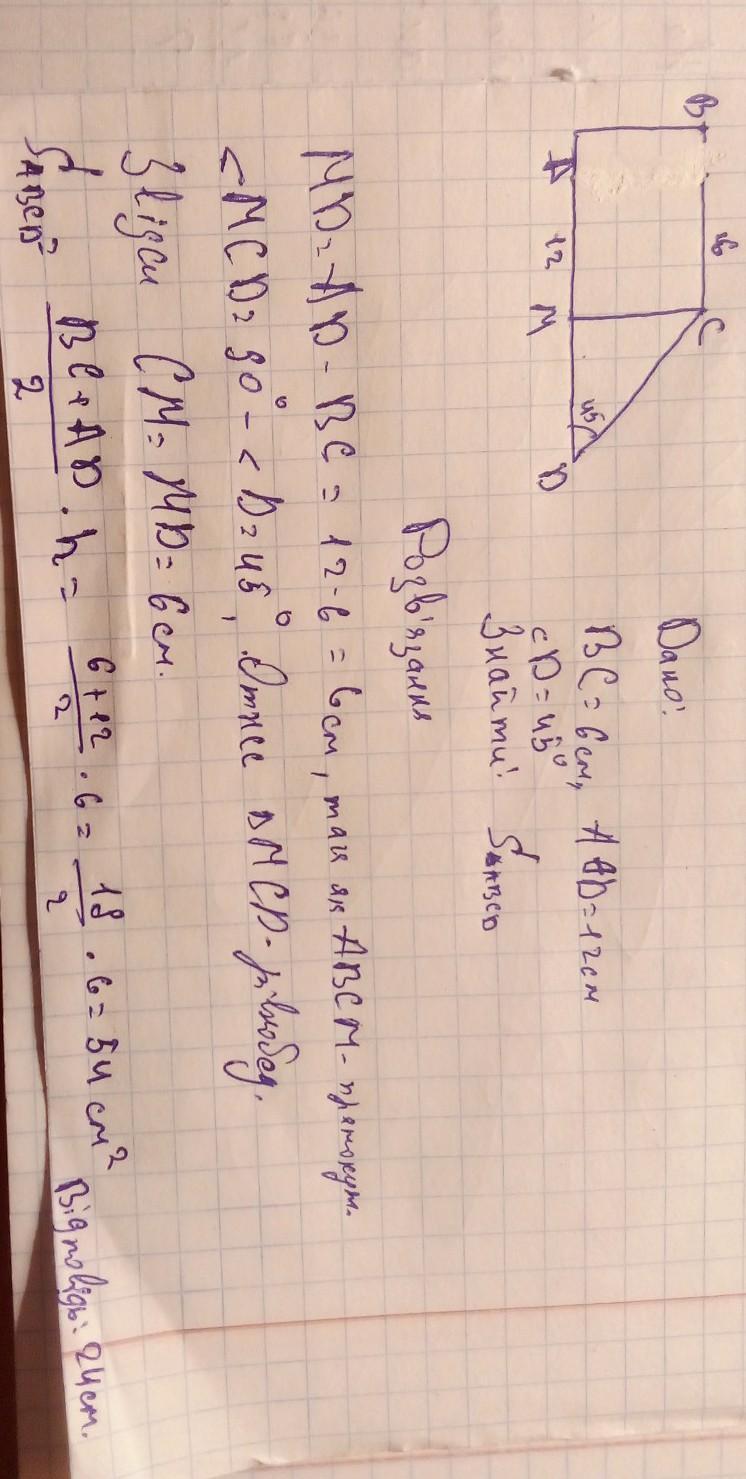 B 6 C
A 12 M 45 D
Дано:
BC = 6 см, AD = 12 см
<D = 45°
Знайти: SABCD
Розв'язання
MD = AD - BC = 12 - 6 = 6 см, так як ABCM - прямокут.
<MCD = 90° - <D = 45°, Отже ΔMCD - рівнобед.
Звідси CM = MD = 6 см.
SABCD = BC + AD / 2 · h = 6 + 12 / 2 · 6 = 18 / 2 · 6 = 54 см²
Відповідь: 24 см.